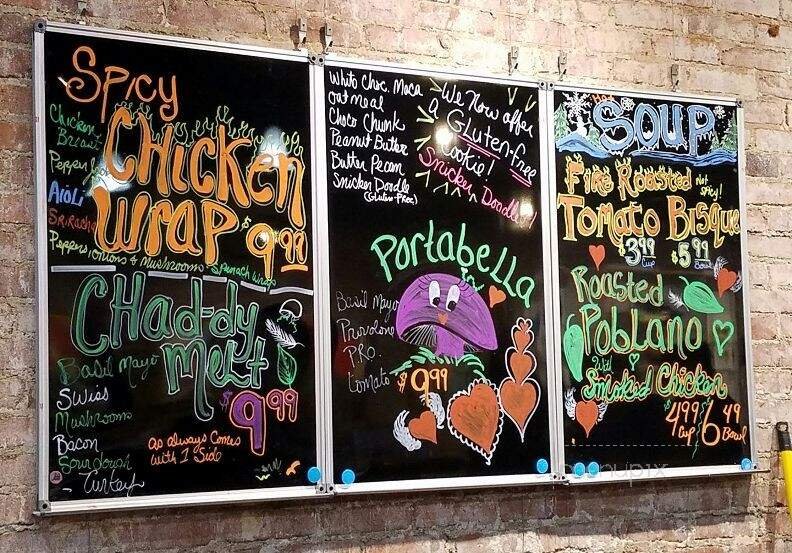 Spicy
Chicken
Wrap $9.99
Chicken
Breast
Pepper Jack
Aioli
Sriracha
Peppers, onions & Mushrooms - Spinach Wrap
Chad-dy
Melt
$9.99
Basil Mayo
Swiss
Mushrooms
Bacon
Sourdough
- Turkey
as always Comes
with 1 Side
White Choc. Maca
oatmeal
Choco Chunk
Peanut Butter
Butter Pecan
Snicker Doodle
(Gluten-Free)
We Now offer
a Gluten-free
Cookie!
Snicker Doodle!
Portabella
Basil Mayo
Provolone
P.R.O.
tomato
$9.99
Hot
Soup
Fire Roasted Not
Spicy!
Tomato Bisque
3.99 Cup $5.99 Bowl
Roasted
Poblano
Smoked Chicken
$4.99 Cup $6.49 Bowl